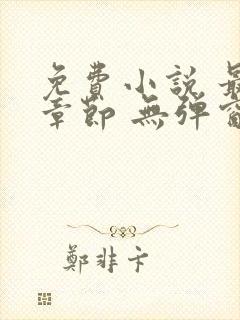 免費小説 最
章節 無彈窗
鄭非卞